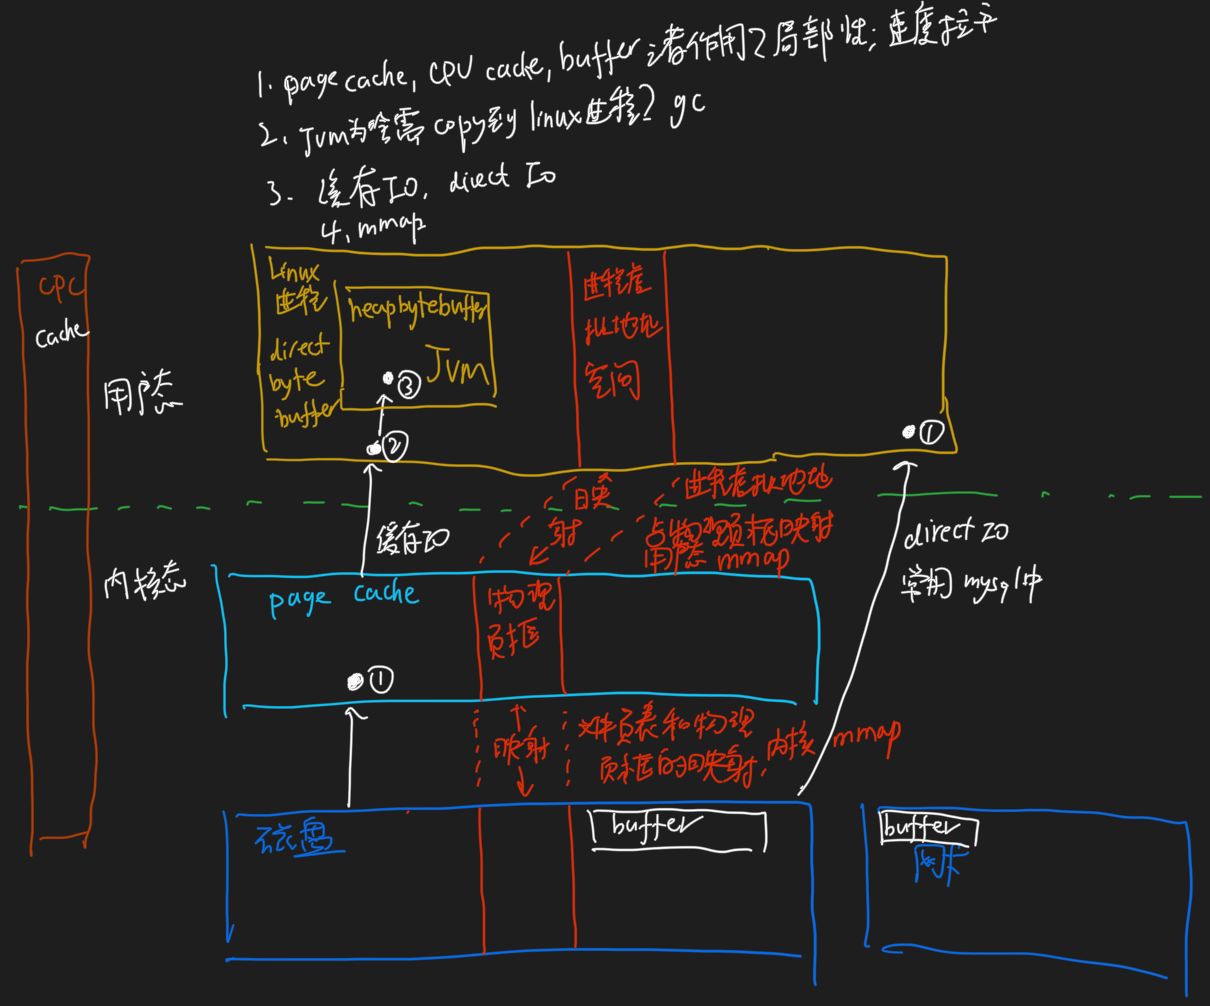 1. page cache, CPU cache, buffer 三者作用? 局部性; 速度拉平
2. Jvm为啥需copy到linux进程? gc
3. 缓存IO, direct Io
4. mmap
CPC
cache
用户态
Linux
进程
direct
byte
buffer
heapbytebuffer
Jvm
③
②
进程虚
拟地址
空间
①
映
射
进程虚拟地址
占物理页框映射
用户态 mmap
缓存IO
direct IO
常用 mysql中
内核态
page cache
①
物理
页框
映射
文件页表和物理
页框的映射, 内核 mmap
磁盘
buffer
buffer
网卡